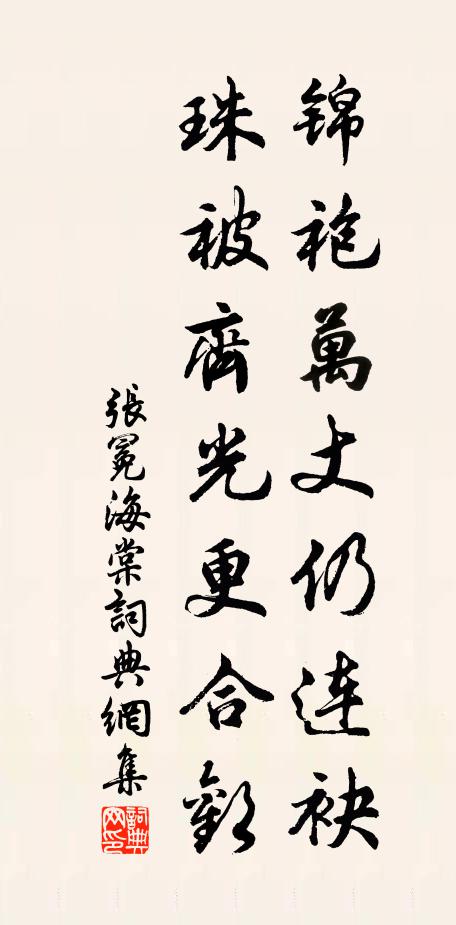 锦袍萬丈仍連袂
珠被齊光更合歡
張冕海棠詞典網集
詞典网印